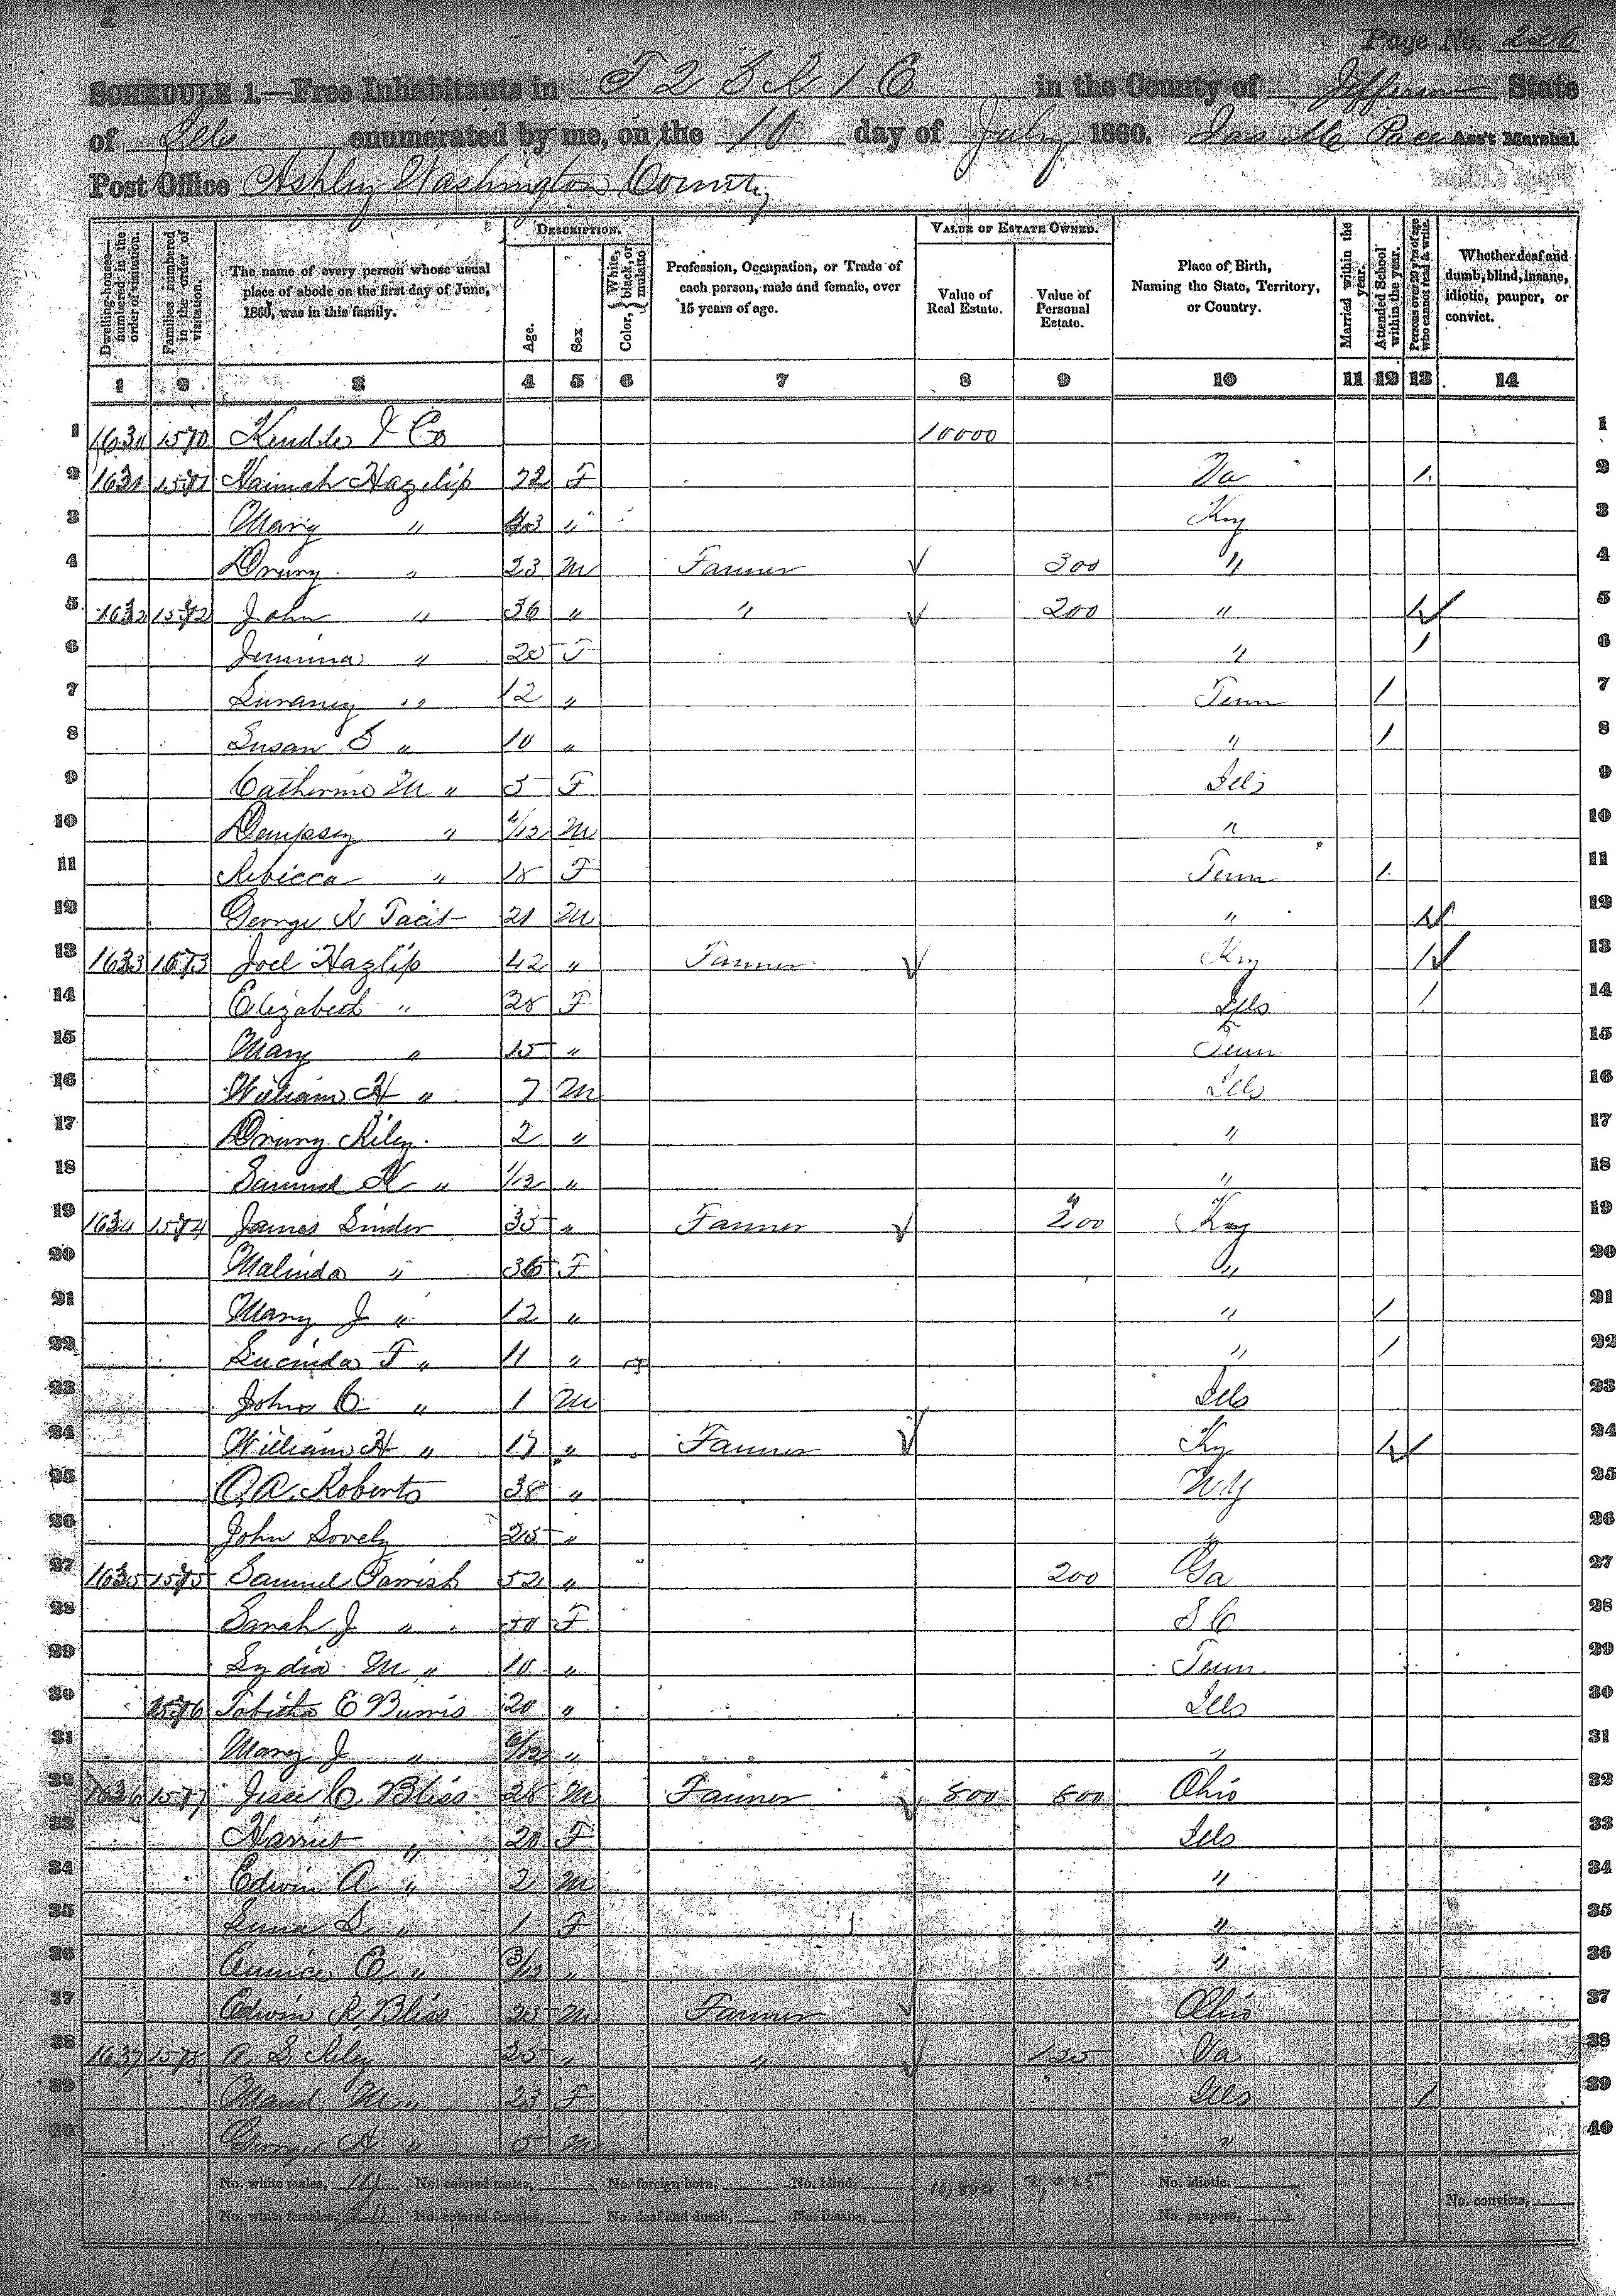 Page No. 226
SCHEDULE 1.—Free Inhabitants in T 2 S R 1 E in the County of Jefferson State
of Ills enumerated by me, on the 10 day of July 1860. Pace Ass't Marshal.
Post Office Ashley Washington County
Dwelling-houses—numbered in the order of visitation.
Families numbered in the order of visitation.
The name of every person whose usual place of abode on the first day of June, 1860, was in this family.
DESCRIPTION.
Age.
Sex
Color, White, black, or mulatto
Profession, Occupation, or Trade of each person, male and female, over 15 years of age.
VALUE OF ESTATE OWNED.
Value of Real Estate.
Value of Personal Estate.
Place of Birth, Naming the State, Territory, or Country.
Married within the year.
Attended School within the year.
Persons over 20 y'rs of age who cannot read & write.
Whether deaf and dumb, blind, insane, idiotic, pauper, or convict.
1 2 3 4 5 6 7 8 9 10 11 12 13 14
1 1630 1570 & Co 10000 1
2 1631 1571 Hannah Hazelip 72 F Va 1 2
3 Mary " " Ky 3
4 Drury " 23 M Farmer 300 " 4
5 1632 1572 John " 36 " " 200 " 1 5
6 Jemima " 20 F " 1 6
7 Suraney " 12 " Tenn 1 7
8 Susan S " 10 " " 1 8
9 Catherine M " 5 F Ills 9
10 Dempsey " /12 M " 10
11 Rebicca " 18 F Tenn 1 11
12 George R 21 M " 1 12
13 1633 1573 Joel Hazlip 42 " Farmer Ky 1 13
14 Elizabeth " 28 F Ills 1 14
15 Mary " 15 " Tenn 15
16 William H " 7 M Ills 16
17 Drury Riley 2 " " 17
18 Samuel H " 1/12 " " 18
19 1634 1574 James Sinder 35 " Farmer 200 Ky 19
20 Malinda " 36 F " 20
21 Mary J " 12 " " 1 21
22 Lucinda F " 11 " " 1 22
23 John C " 1 M Ills 23
24 William H " 17 " Farmer Ky 1 24
25 Roberts 38 " N Y 25
26 John Lovely 25 " " 26
27 1635 1575 Samuel Parrish 52 " 200 Ga 27
28 Sarah J " 50 F S C 28
29 Lydia M " 10 " Tenn 29
30 1576 Tabitha E Burris 20 " Ills 30
31 Mary J " 6/12 " " 31
32 1636 1577 Jesse C. Bliss 28 M Farmer 800 800 Ohio 32
33 Harriet " 20 F Ills 33
34 Edwin A " 2 M " 34
35 S " 1 F " 35
36 Eunice E " 3/12 " " 36
37 Edwin R Bliss 25 M Farmer Ohio 37
38 1637 1578 A S Riley 25 " " 125 Va 38
39 M " 23 F Ills 1 39
40 George A " 5 M " 40
No. white males, 19 No. colored males, No. foreign born, No. blind, 10,800 2,025 No. idiotic. No. convicts,
No. white females, 20 No. colored females, No. deaf and dumb, No. insane, No. paupers,
40